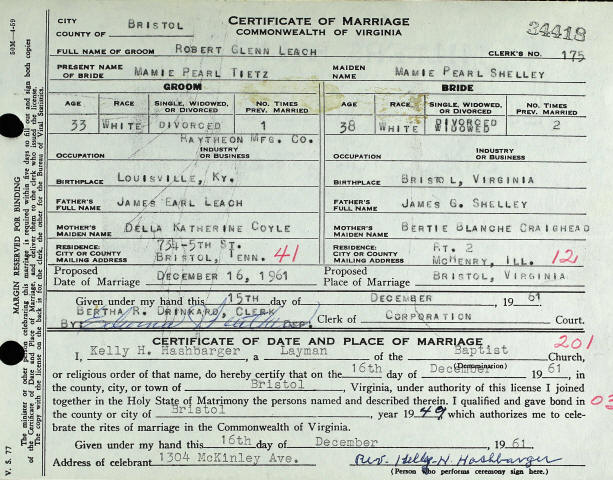 CITY
COUNTY OF BRISTOL
CERTIFICATE OF MARRIAGE
COMMONWEALTH OF VIRGINIA
34418
FULL NAME OF GROOM ROBERT GLENN LEACH CLERK'S NO. 175
PRESENT NAME OF BRIDE MAMIE PEARL TIETZ MAIDEN NAME MAMIE PEARL SHELLEY
GROOM BRIDE
AGE RACE SINGLE, WIDOWED, OR DIVORCED NO. TIMES PREV. MARRIED AGE RACE SINGLE, WIDOWED, OR DIVORCED NO. TIMES PREV. MARRIED
33 WHITE DIVORCED 1 38 WHITE DIVORCED WIDOWED 2
RAYTHEON MFG. CO.
OCCUPATION INDUSTRY OR BUSINESS OCCUPATION INDUSTRY OR BUSINESS
BIRTHPLACE LOUISVILLE, KY. BIRTHPLACE BRISTOL, VIRGINIA
FATHER'S FULL NAME JAMES EARL LEACH FATHER'S FULL NAME JAMES G. SHELLEY
MOTHER'S MAIDEN NAME DELLA KATHERINE COYLE MOTHER'S MAIDEN NAME BERTIE BLANCHE CRAIGHEAD
RESIDENCE: CITY OR COUNTY MAILING ADDRESS 734-5TH ST. BRISTOL, TENN. 41 RESIDENCE: CITY OR COUNTY MAILING ADDRESS RT. 2 MCHENRY, ILL. 12
Proposed Date of Marriage DECEMBER 16, 1961 Proposed Place of Marriage BRISTOL, VIRGINIA
Given under my hand this 15TH day of DECEMBER 1961
BERTHA R. DRINKARD, CLERK
By: DEP. Clerk of CORPORATION Court.
CERTIFICATE OF DATE AND PLACE OF MARRIAGE 201
I, Kelly H. Hashbarger, a Layman of the Baptist Church,
(Denomination)
or religious order of that name, do hereby certify that on the 16th day of December 1961, in
the county, city, or town of Bristol, Virginia, under authority of this license I joined
together in the Holy State of Matrimony the persons named and described therein. I qualified and gave bond in 03
the county or city of Bristol year 1949 which authorizes me to cele-
brate the rites of marriage in the Commonwealth of Virginia.
Given under my hand this 16th day of December, 1961.
Address of celebrant 1304 McKinley Ave. Rev. Kelly H. Hashbarger
(Person who performs ceremony sign here.)
V. S. 77
50M-4-59
MARGIN RESERVED FOR BINDING
The minister or other person celebrating this marriage is required within five days to fill out and sign both copies
of the Certificate of Date and Place of Marriage and deliver them to the clerk who issued the license.
The copy with the license on the back is for the clerk, the other for the Bureau of Vital Statistics.